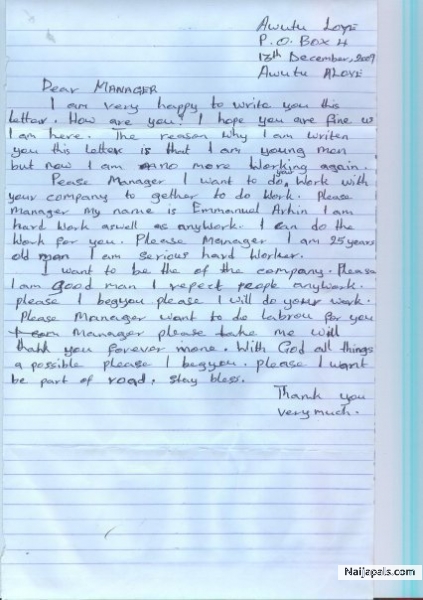 Awutu Loye
P.O. Box 4
13th December, 2009
Awutu ALOYE
Dear MANAGER
I am very happy to write you this
letter. How are you? I hope you are fine
I am here. The reason why I am writen
you this letter is that I am young man
but now I am no more working again.
Pease Manager I want to do your work with
your company to gether to do work. Please
Manager my name is Emmanuel Arhin I am
hard work aswell as anywork. I can do the
work for you. Please Manager I am 25 years
old man I am serious hard worker.
I want to be the of the company. Please
I am good man I repect peope anywork.
please I begyou please I will do your work.
Please Manager want to do labrou for you
Manager please take me will
thank you forever more. With God all things
a possible please I begyou. please I want
be part of road, stay bless.
Thank you
very much.
Naijapals.com